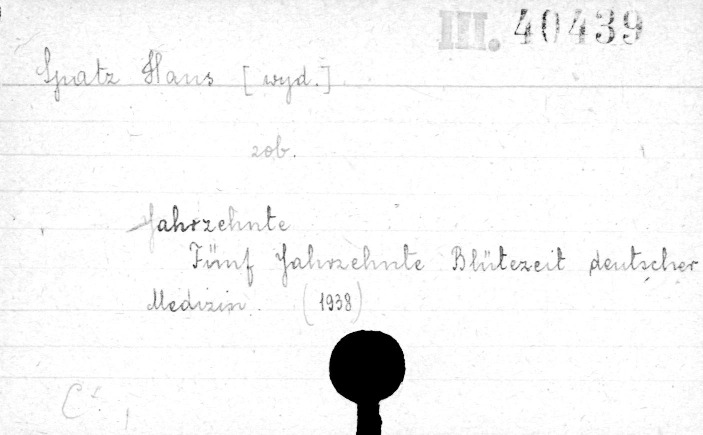 III. 40439
Spatz Hans [wyd.]
zob.
Jahrzehnte
Fünf Jahrzehnte Blütezeit deutscher
Medizin. (1938)